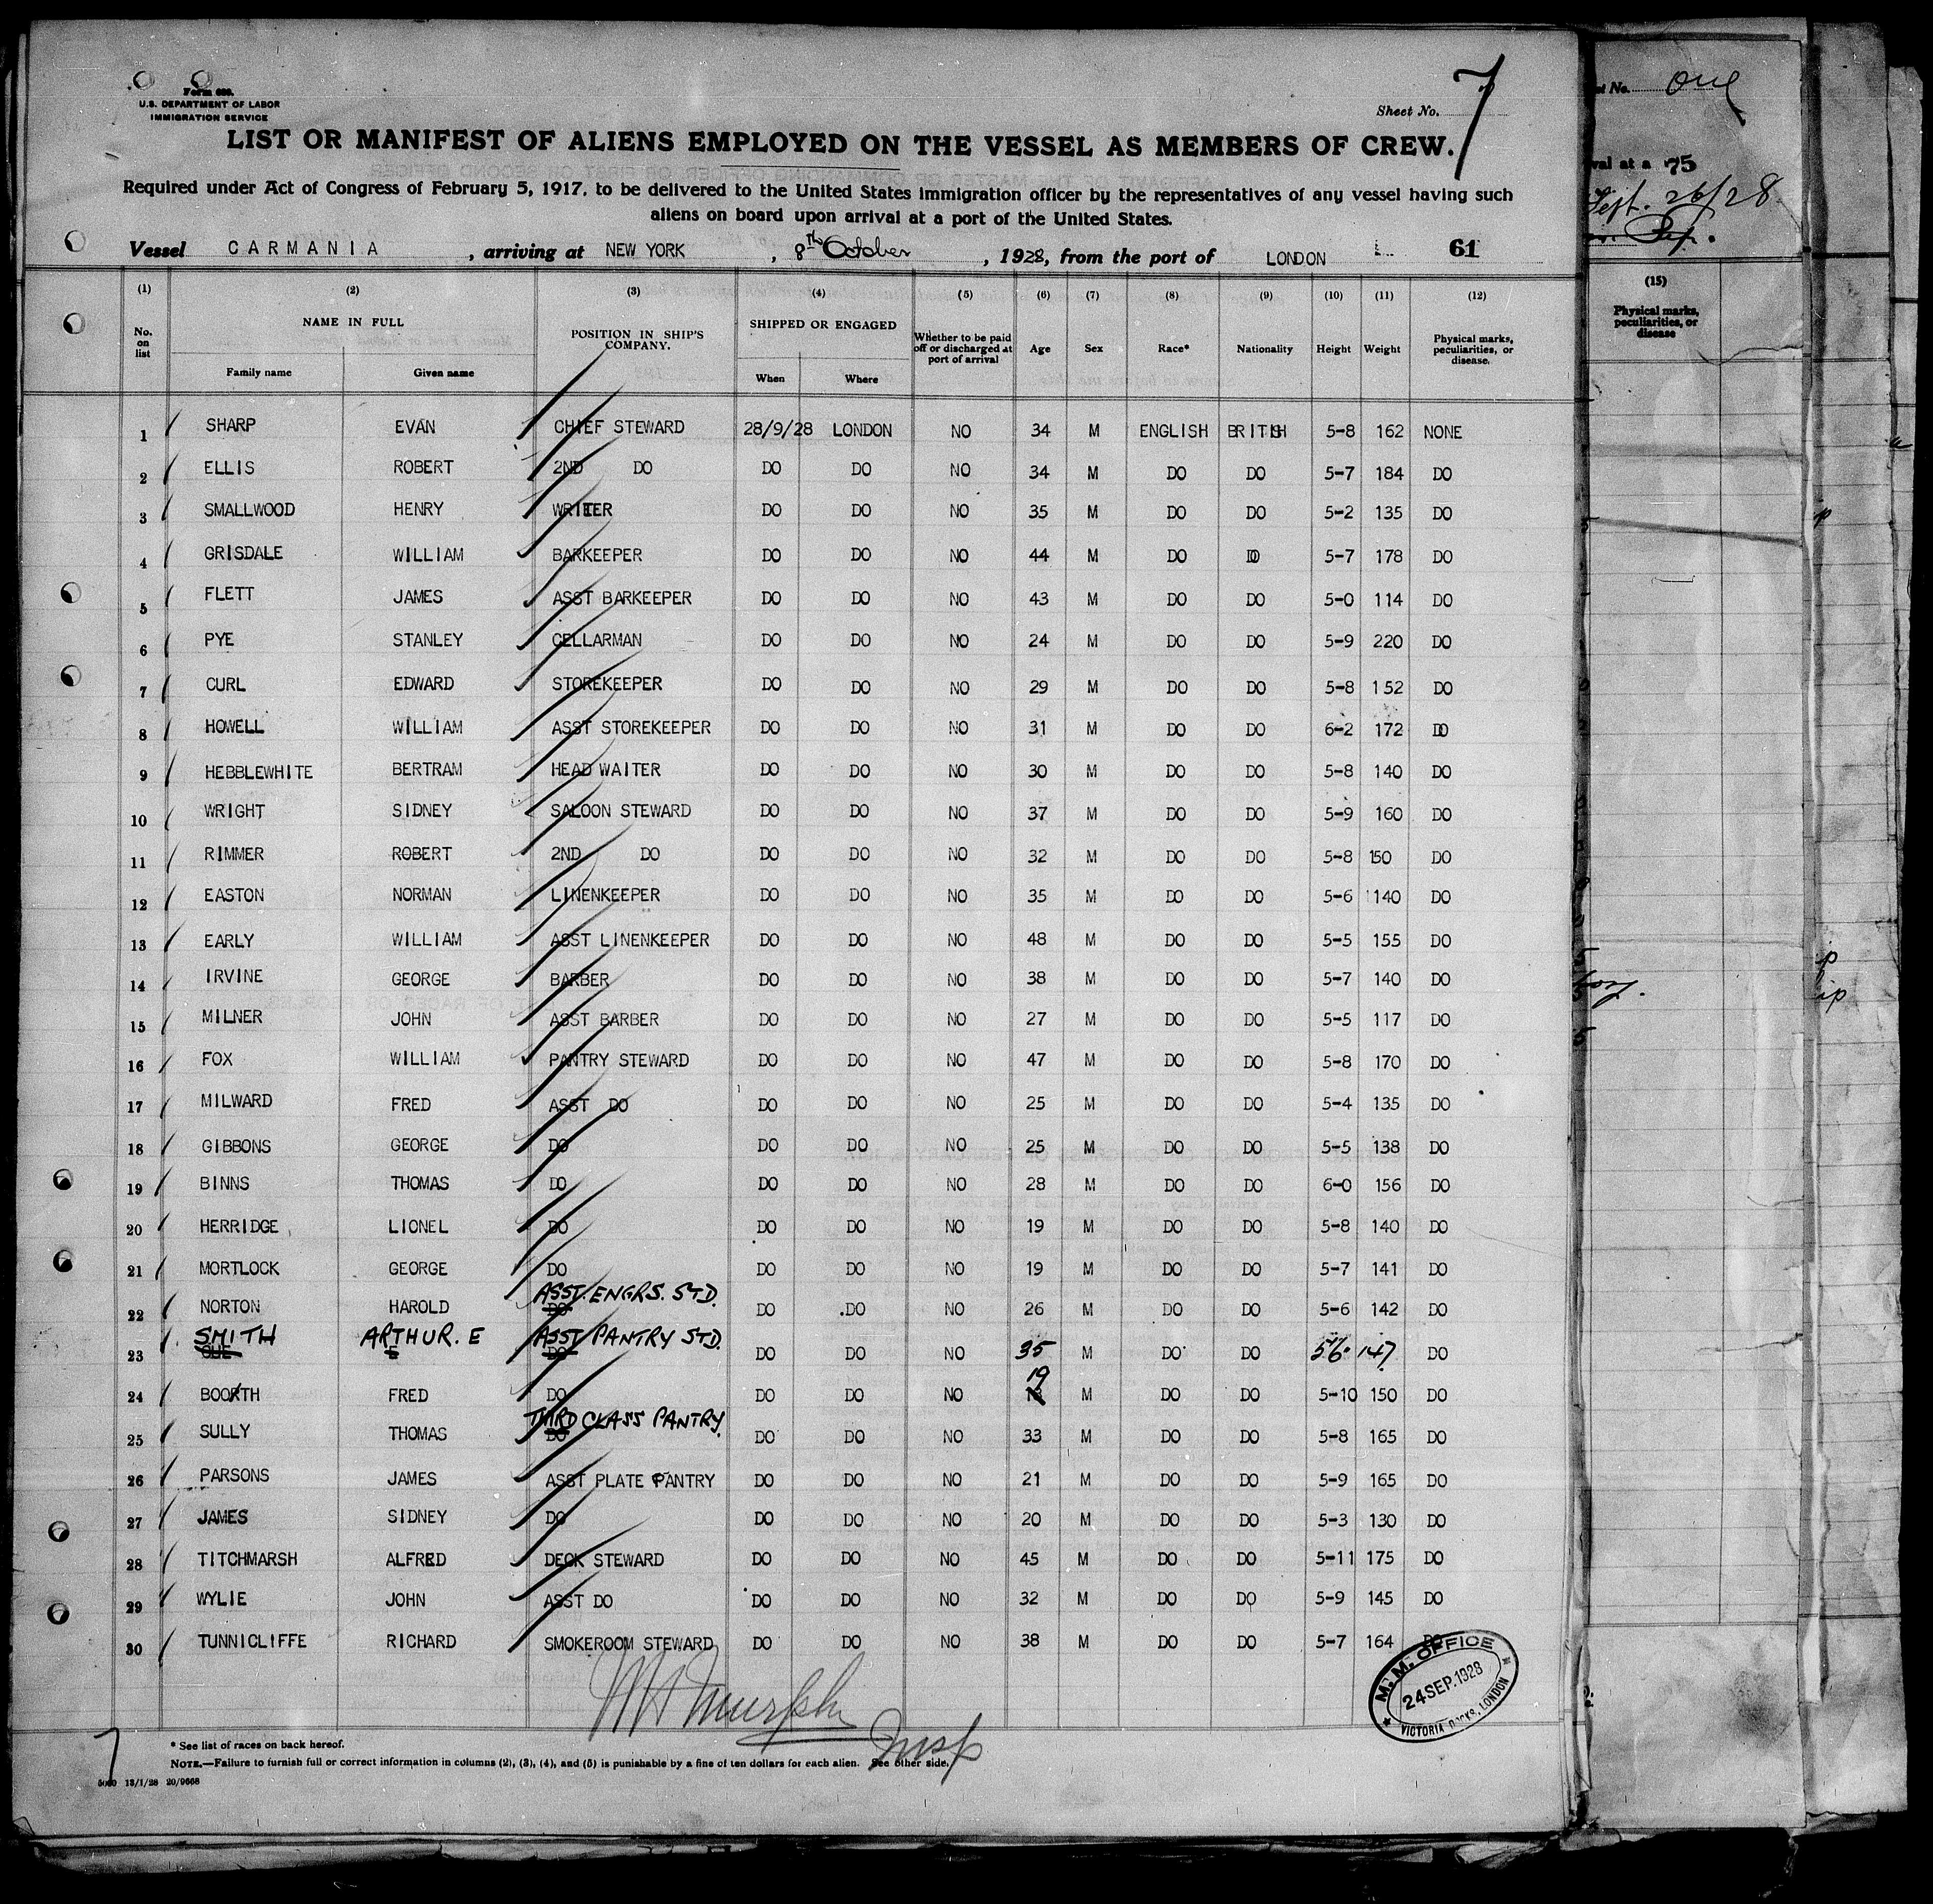 Form 689.
U.S. DEPARTMENT OF LABOR
IMMIGRATION SERVICE
Sheet No. 7
LIST OR MANIFEST OF ALIENS EMPLOYED ON THE VESSEL AS MEMBERS OF CREW.
Required under Act of Congress of February 5, 1917, to be delivered to the United States immigration officer by the representatives of any vessel having such
aliens on board upon arrival at a port of the United States.
Vessel CARMANIA, arriving at NEW YORK, 8th October, 1928, from the port of LONDON 61
(1) (2) (3) (4) (5) (6) (7) (8) (9) (10) (11) (12)
No. on list NAME IN FULL Family name Given name POSITION IN SHIP'S COMPANY. SHIPPED OR ENGAGED When Where Whether to be paid off or discharged at port of arrival Age Sex Race* Nationality Height Weight Physical marks, peculiarities, or disease.
1 SHARP EVAN CHIEF STEWARD 28/9/28 LONDON NO 34 M ENGLISH BRITISH 5-8 162 NONE
2 ELLIS ROBERT 2ND DO DO DO NO 34 M DO DO 5-7 184 DO
3 SMALLWOOD HENRY WRITER DO DO NO 35 M DO DO 5-2 135 DO
4 GRISDALE WILLIAM BARKEEPER DO DO NO 44 M DO DO 5-7 178 DO
5 FLETT JAMES ASST BARKEEPER DO DO NO 43 M DO DO 5-0 114 DO
6 PYE STANLEY CELLARMAN DO DO NO 24 M DO DO 5-9 220 DO
7 CURL EDWARD STOREKEEPER DO DO NO 29 M DO DO 5-8 152 DO
8 HOWELL WILLIAM ASST STOREKEEPER DO DO NO 31 M DO DO 6-2 172 DO
9 HEBBLEWHITE BERTRAM HEAD WAITER DO DO NO 30 M DO DO 5-8 140 DO
10 WRIGHT SIDNEY SALOON STEWARD DO DO NO 37 M DO DO 5-9 160 DO
11 RIMMER ROBERT 2ND DO DO DO NO 32 M DO DO 5-8 150 DO
12 EASTON NORMAN LINENKEEPER DO DO NO 35 M DO DO 5-6 140 DO
13 EARLY WILLIAM ASST LINENKEEPER DO DO NO 48 M DO DO 5-5 155 DO
14 IRVINE GEORGE BARBER DO DO NO 38 M DO DO 5-7 140 DO
15 MILNER JOHN ASST BARBER DO DO NO 27 M DO DO 5-5 117 DO
16 FOX WILLIAM PANTRY STEWARD DO DO NO 47 M DO DO 5-8 170 DO
17 MILWARD FRED ASST DO DO DO NO 25 M DO DO 5-4 135 DO
18 GIBBONS GEORGE DO DO DO NO 25 M DO DO 5-5 138 DO
19 BINNS THOMAS DO DO DO NO 28 M DO DO 6-0 156 DO
20 HERRIDGE LIONEL DO DO DO NO 19 M DO DO 5-8 140 DO
21 MORTLOCK GEORGE DO DO DO NO 19 M DO DO 5-7 141 DO
22 NORTON HAROLD ASST. ENGRS. STD. DO DO NO 26 M DO DO 5-6 142 DO
23 SMITH ARTHUR. E ASST PANTRY STD. DO DO NO 35 M DO DO 5-6 147 DO
24 BOOTH FRED DO DO DO NO 19 M DO DO 5-10 150 DO
25 SULLY THOMAS THIRD CLASS PANTRY. DO DO NO 33 M DO DO 5-8 165 DO
26 PARSONS JAMES ASST PLATE PANTRY DO DO NO 21 M DO DO 5-9 165 DO
27 JAMES SIDNEY DO DO DO NO 20 M DO DO 5-3 130 DO
28 TITCHMARSH ALFRED DECK STEWARD DO DO NO 45 M DO DO 5-11 175 DO
29 WYLIE JOHN ASST DO DO DO NO 32 M DO DO 5-9 145 DO
30 TUNNICLIFFE RICHARD SMOKEROOM STEWARD DO DO NO 38 M DO DO 5-7 164 DO
M.M. OFFICE
24 SEP. 1928
VICTORIA DOCKS, LONDON
Murphy
Insp
7
* See list of races on back hereof.
NOTE.—Failure to furnish full or correct information in columns (2), (3), (4), and (5) is punishable by a fine of ten dollars for each alien. See other side.
5000 13/1/28 20/9668
No. one
val at a 75
Sept. 26/28
(15)
Physical marks, peculiarities, or disease